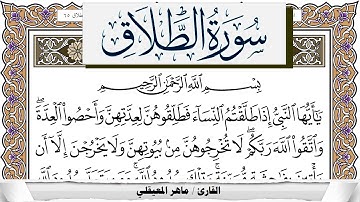 سُورَةُ الطَّلَاقِ
بِسْمِ اللَّهِ الرَّحْمَٰنِ الرَّحِيمِ
يَا أَيُّهَا النَّبِيُّ إِذَا طَلَّقْتُمُ النِّسَاءَ فَطَلِّقُوهُنَّ لِعِدَّتِهِنَّ وَأَحْصُوا الْعِدَّةَ
وَاتَّقُوا اللَّهَ رَبَّكُمْ لَا تُخْرِجُوهُنَّ مِنْ بُيُوتِهِنَّ وَلَا يَخْرُجْنَ إِلَّا أَنْ
القارئ / ماهر المعيقلي